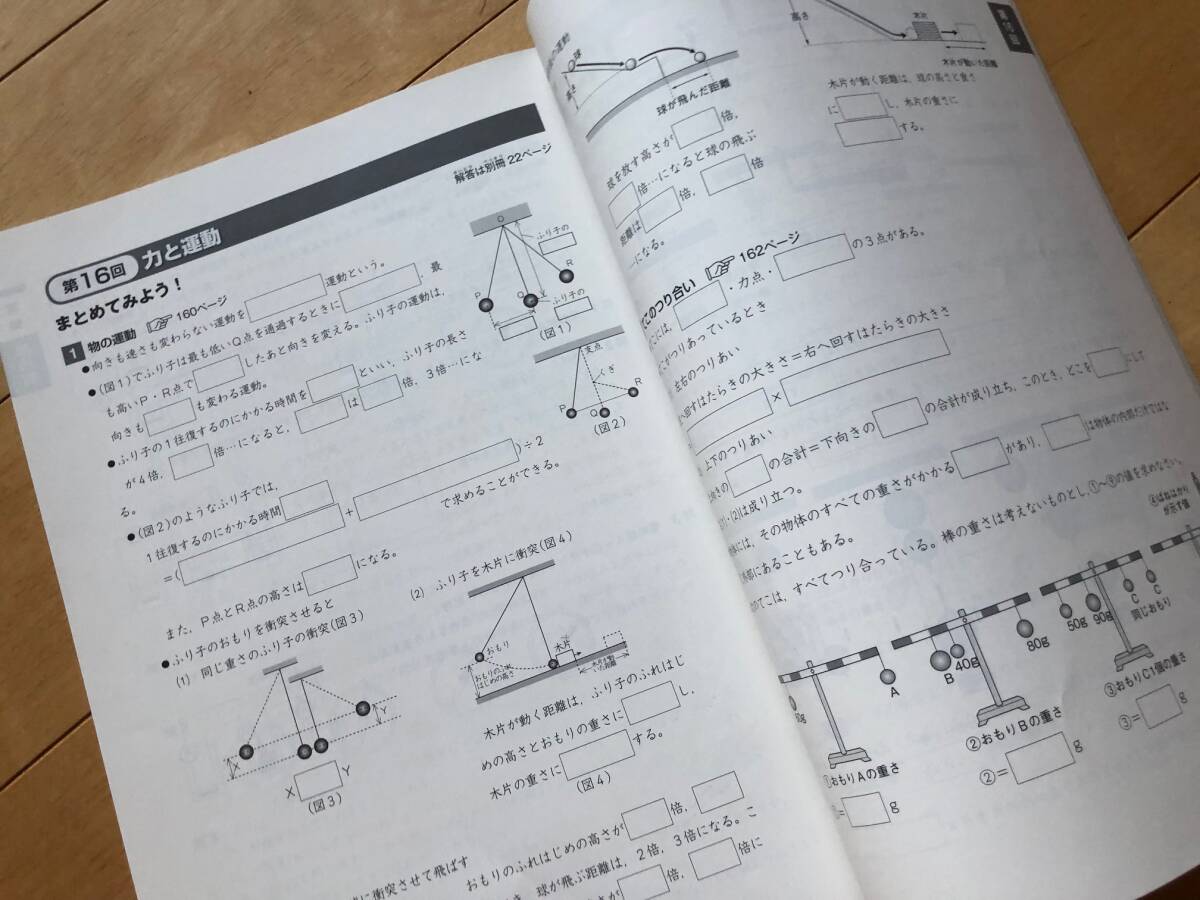 解答は別冊22ページ
第16回 力と運動
まとめてみよう！
1 物の運動 160ページ
●向きも速さも変わらない運動を 運動という。
●(図1)でふり子は最も低いQ点を通過するときに ，最
も高いP・R点で したあと向きを変える。ふり子の運動は，
向きも も変わる運動。
●ふり子の1往復するのにかかる時間を といい，ふり子の長さ
が4倍， 倍…になると， は 倍，3倍…にな
る。
●(図2)のようなふり子では，
1往復するのにかかる時間
=( + )÷2
で求めることができる。
また，P点とR点の高さは になる。
●ふり子のおもりを衝突させると
(1) 同じ重さのふり子の衝突(図3)
X Y
(図3)
O
ふり子の
R
P
Q
ふり子の
(図1)
支点
くぎ
P
Q
R
(図2)
(2) ふり子を木片に衝突(図4)
おもり
木片
おもりのふれ
はじめの高さ
木片が動
いた距離
木片が動く距離は，ふり子のふれはじ
めの高さとおもりの重さに し，
木片の重さに する。
(図4)
に衝突させて飛ばす
おもりのふれはじめの高さが 倍，
き，球が飛ぶ距離は，2倍，3倍になる。こ
さが 倍， 倍に
の運動
球
高さ
球が飛んだ距離
球を放す高さが 倍，
倍…になると球の飛ぶ
距離は 倍， 倍
…になる。
高さ
木片
木片が動いた距離
木片が動く距離は，球の高さと重さ
に し，木片の重さに
する。
このつり合い 162ページ
には， ・力点・ の3点がある。
こがつりあっているとき
左右のつりあい
へ回すはたらきの大きさ＝右へ回すはたらきの大きさ
×
上下のつりあい
向きの の合計＝下向きの の合計が成り立ち，このとき，どこを にして
(2)は成り立つ。
体には，その物体のすべての重さがかかる があり， は物体の内部だけではな
外部にあることもある。
のてこは，すべてつり合っている。棒の重さは考えないものとし，①～④の値を求めなさい。
A
B
40g
80g
50g
90g
C
C
同じおもり
④ばねはかり
が示す値
①おもりAの重さ
①= g
②おもりBの重さ
②= g
③おもりC1個の重さ
③= g